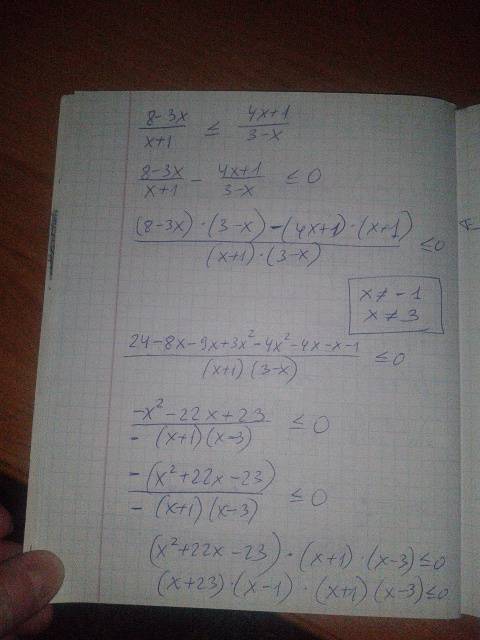 (8-3x)/(x+1) ≤ (4x+1)/(3-x)
(8-3x)/(x+1) - (4x+1)/(3-x) ≤ 0
((8-3x)·(3-x)-(4x+1)·(x+1))/((x+1)·(3-x)) ≤ 0
x ≠ -1
x ≠ 3
(24-8x-9x+3x²-4x²-4x-x-1)/((x+1)(3-x)) ≤ 0
(-x²-22x+23)/(-(x+1)(x-3)) ≤ 0
(-(x²+22x-23))/(-(x+1)(x-3)) ≤ 0
(x²+22x-23)·(x+1)·(x-3) ≤ 0
(x+23)·(x-1)·(x+1)(x-3) ≤ 0